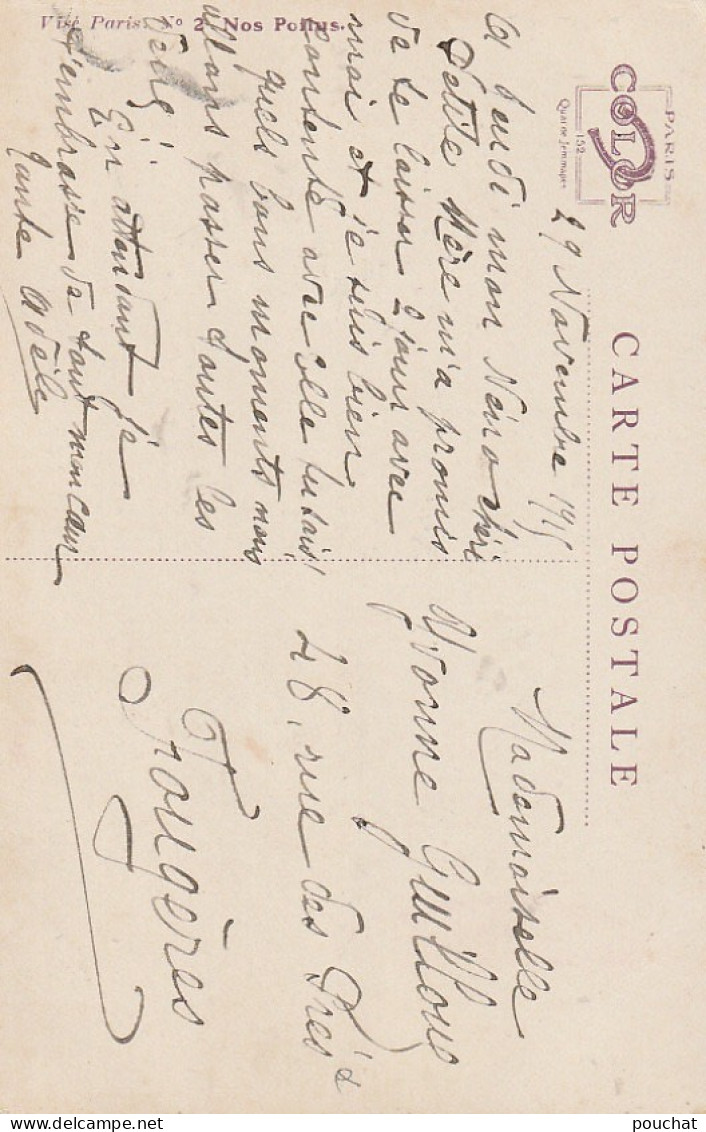 CARTE POSTALE
PARIS
COLOR
152
Quai de Jemmapes
29 Novembre 1915
A Jeudi mon Néno chéri
Petite Mère m'a promis
de te laisser 2 jours avec
moi et je suis bien
contente avec elle tu sais!
quels bons moments nous
allons passer toutes les
En attendant je
t'embrasse de tout mon cœur
Tante Adèle
Mademoiselle
Yvonne Guilloux
48, rue des Prés
Fougères
Visé Paris N° 2 Nos Poilus.
pouchat